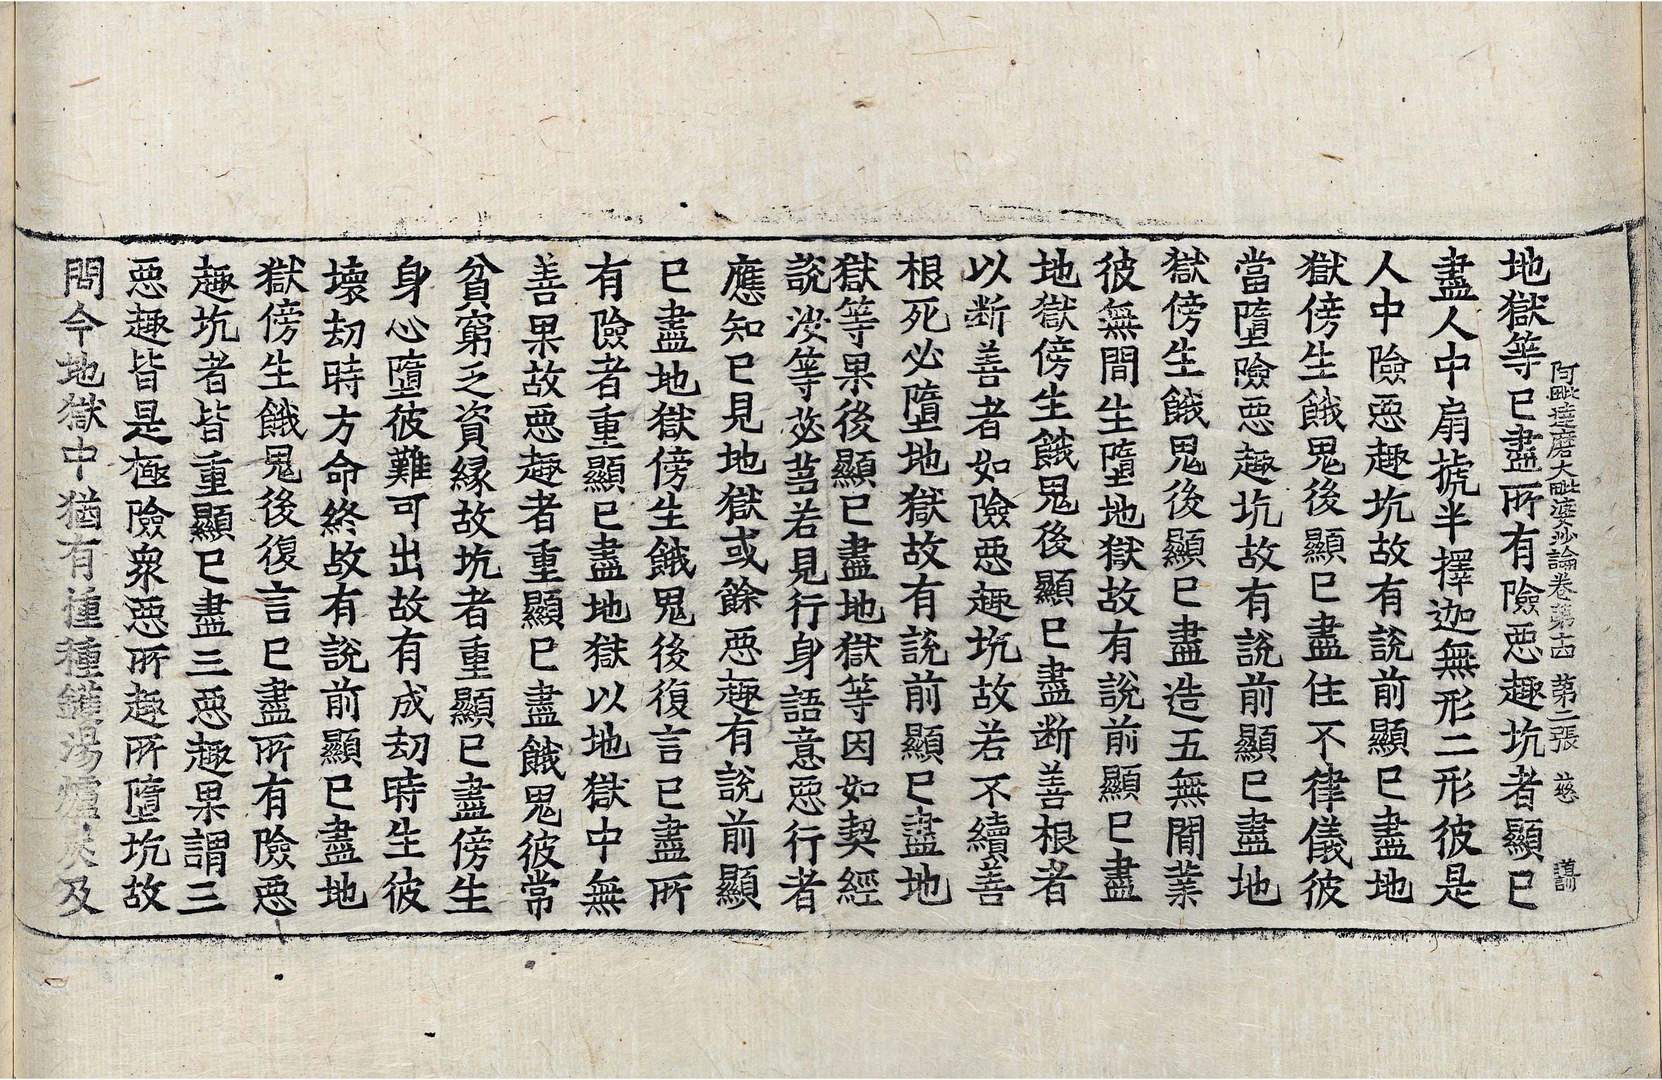 阿毗達磨大毗婆沙論卷第十四 第二張 慈
地獄等已盡所有險惡趣坑者顯已
盡人中扇搋半擇迦無形二形彼是
人中險惡趣坑故有說前顯已盡地
獄傍生餓鬼後顯已盡住不律儀彼
當墮險惡趣坑故有說前顯已盡地
獄傍生餓鬼後顯已盡造五無間業
彼無間生墮地獄故有說前顯已盡
地獄傍生餓鬼後顯已盡断善根者
以断善者如險惡趣坑故若不續善
根死必墮地獄故有說前顯已盡地
獄等果後顯已盡地獄等因如契經
說汝等苾芻若見行身語意惡行者
應知已見地獄或餘惡趣有說前顯
已盡地獄傍生餓鬼後復言已盡所
有險者重顯已盡地獄以地獄中無
善果故惡趣者重顯已盡餓鬼彼常
貧窮乏資緣故坑者重顯已盡傍生
身心墮彼難可出故有成劫時生彼
壞劫時方命終故有說前顯已盡地
獄傍生餓鬼後復言已盡所有險惡
趣坑者皆重顯已盡三惡趣果謂三
惡趣皆是極險衆惡所趣所墮坑故
問今地獄中猶有種種鑊湯爐炭及